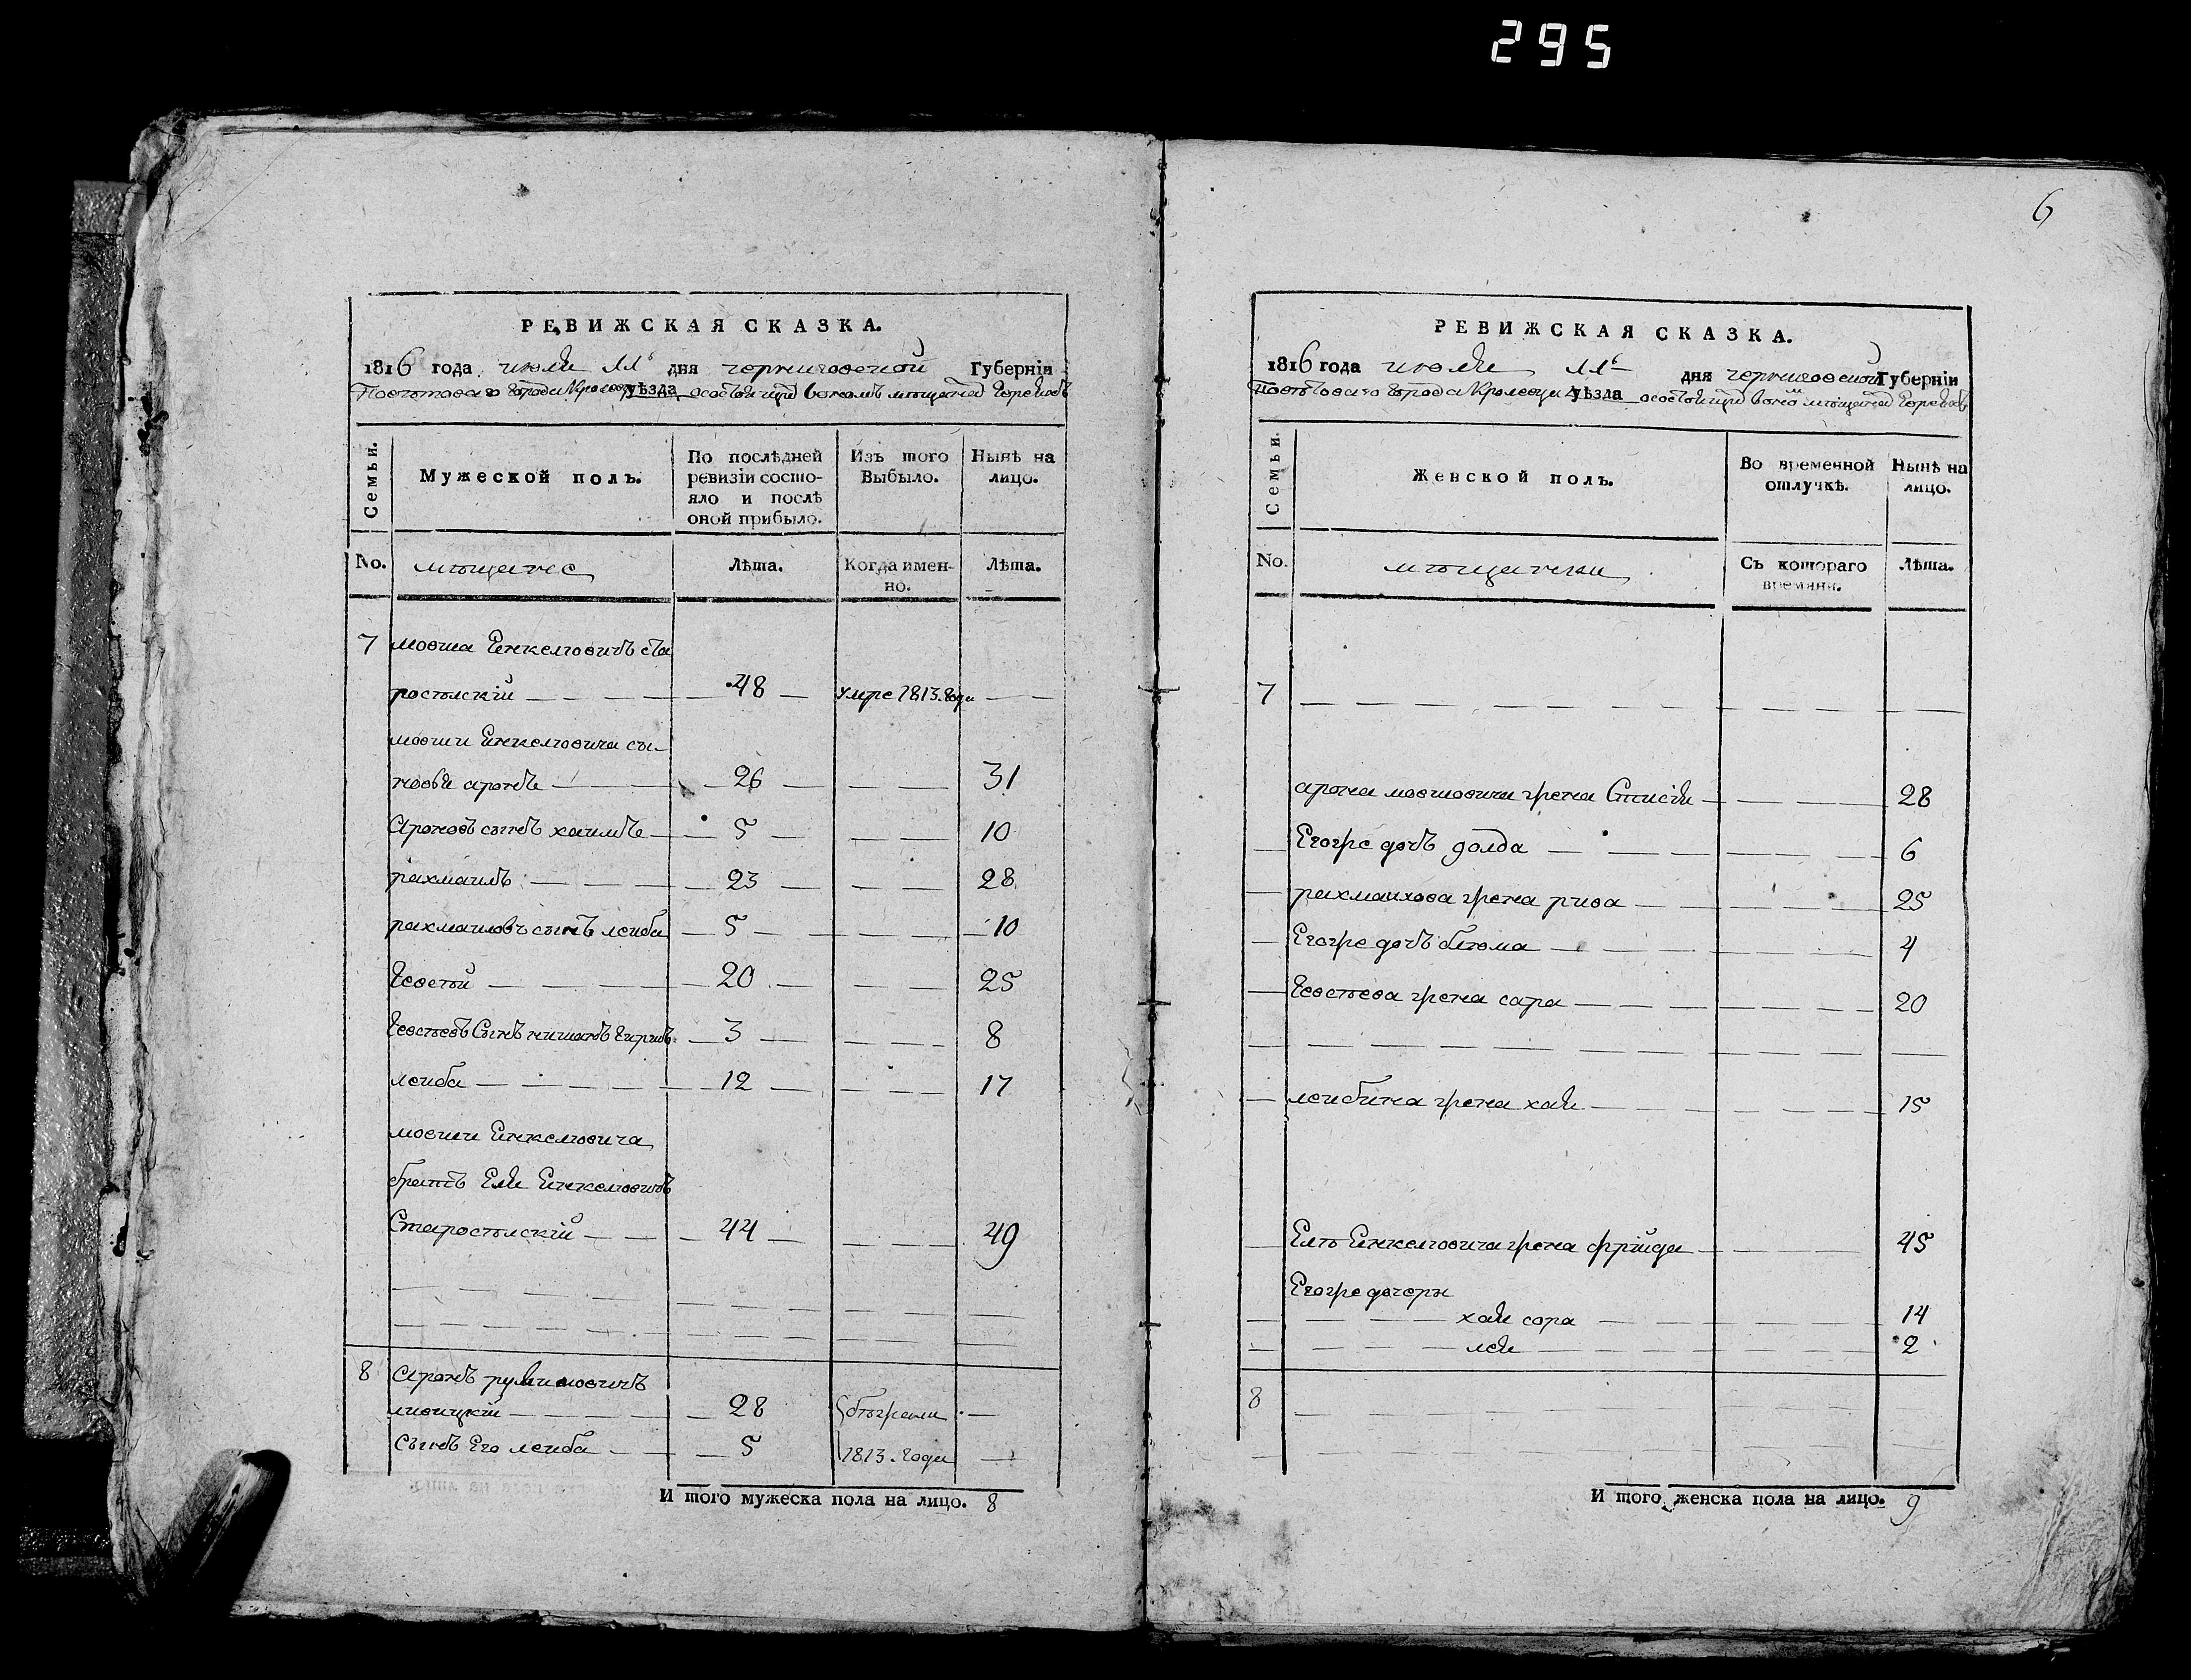 295
РЕВИЖСКАЯ СКАЗКА.
1816 года июля 11 дня черниговской Губерніи
Поветоваго города Кролевца уѣзда о состоящих в оном мещанах Евреях
Семьи.
Мужеской полъ.
По послѣдней ревизіи состояло и послѣ оной прибыло.
Изъ того Выбыло.
Нынѣ на лицо.
No.
мѣщане
Лѣта.
Когда именно.
Лѣта.
7 мовша Еинкелювичъ ста
росѣлскій 48 умре 1813 года
мовши Еинкелювича сы-
новья аронъ 26 31
Ароновъ сынъ хаимъ 5 10
рахмаилъ 23 28
рахмаиловъ сынъ леиба 5 10
Евсѣй 20 25
Евсѣевъ Сынъ 3 8
леиба 12 17
мовши Еинкелювича
братъ Еля Еинкелювичъ
Старосѣлскій 44 49
8 Аронъ
28 бѣжали
сынъ Его леиба 5 1813 года
И того мужеска пола на лицо. 8
6
РЕВИЖСКАЯ СКАЗКА.
1816 года июля 11 дня черниговской Губерніи
Поветоваго города Кролевца уѣзда о состоящих в оном мещанах Евреях
Семьи.
Женской полъ.
Во временной отлучкѣ.
Нынѣ на лицо.
No.
мѣщанки
Съ котораго времяни.
Лѣта.
7
арона мовшовича жена 28
Егоже дочъ голда 6
рахмаилова жена рива 25
Егоже дочъ блюма 4
Евсѣева жена сара 20
леибина жена хая 15
Елѣ Еинкелювича жена фрейда 45
Егоже дочери
хая сора 14
лея 2
8
И того женска пола на лицо. 9